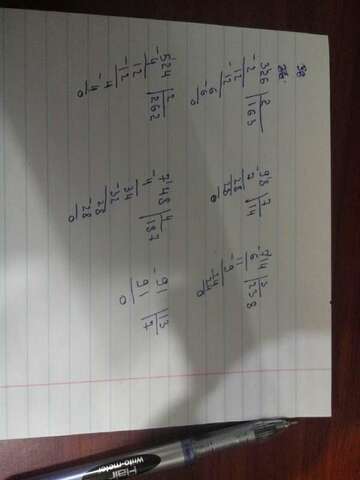 326 | 2
-2 | 163
12
-12
-6
0
98 | 7
-7 | 14
28
28
0
714 | 3
-6 | 238
11
-9
24
-24
0
524 | 2
-4 | 262
12
-12
4
-4
0
748 | 4
-4 | 187
34
-32
28
-28
0
91 | 13
-91 | 7
0
Flair
writo-meter